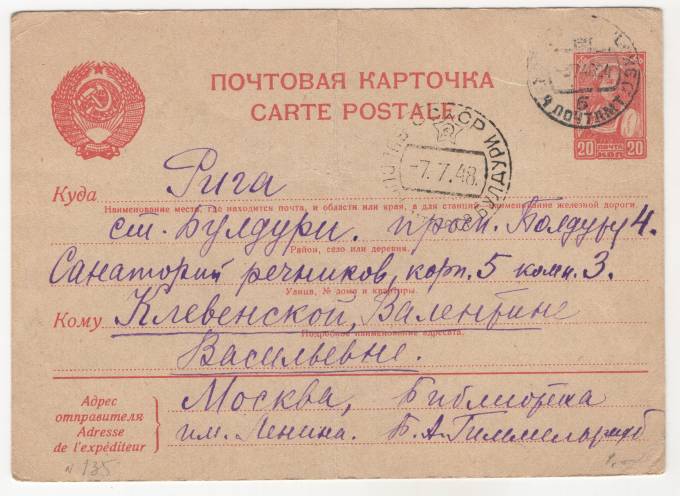 ПОЧТОВАЯ КАРТОЧКА
CARTE POSTALE
6
ПОЧТАМТ
20 ПОЧТА 20
КОП
СССР
БУЛДУРИ
-7.7.48.
Куда Рига
Наименование места, где находится почта, и области или края, а для станций наименование железной дороги.
ст. Булдури. просп. Полдуру 4.
Район, село или деревня.
Санаторий речников, корп. 5 комн. 3.
Улица, № дома и квартиры.
Кому Клевенской, Валентине
Подробное наименование адресата.
Васильевне.
Адрес
отправителя
Adresse
de l'expéditeur
Москва, Библиотека
им. Ленина. Б. А.
N 135